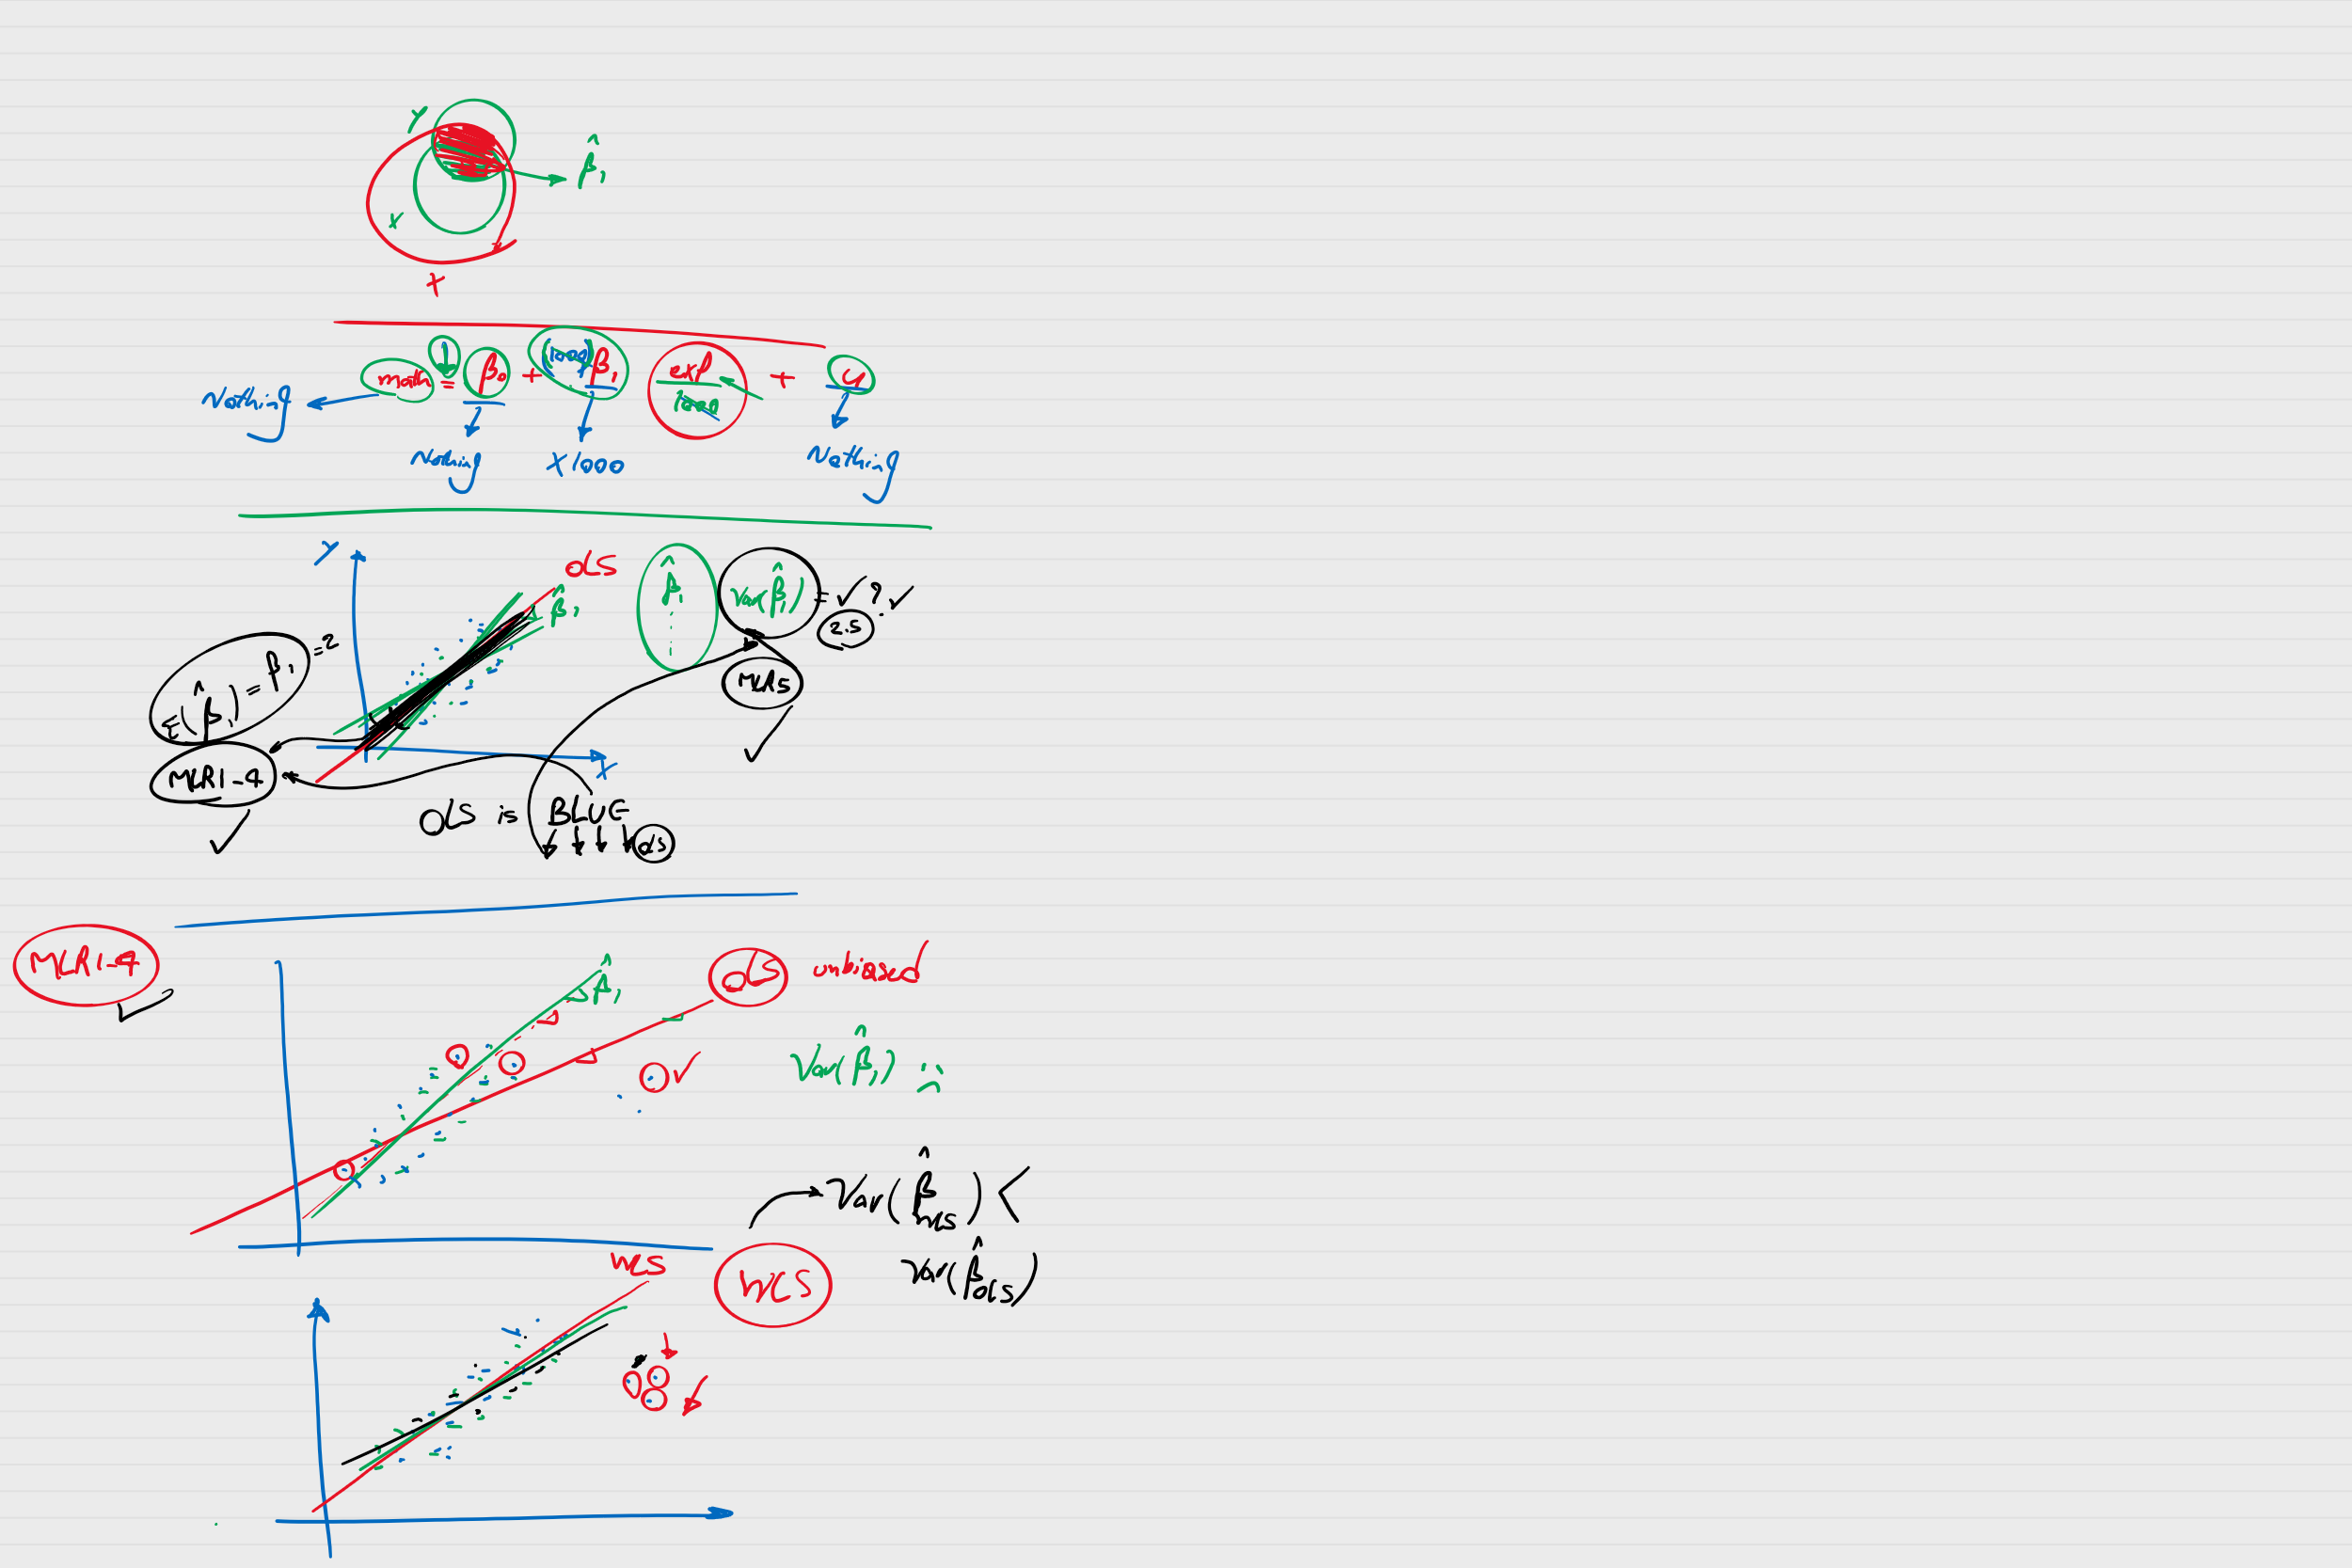 Y
β̂₁
X
X
math = β₀ + (1000) β₁ exp/1000 + u
Nothing
Nothing
X1000
Nothing
Y
OLS
β̂₁
β̂₁
Var(β̂₁) = ✓ ? ✓
2.5
E(β̂₁) = β₁ = 2
MLR5
✓
MLR1-4
✓
X
OLS is BLUE
OLS
MLR1-4
✓
β̂₁
OLS unbiased
✓
Var(β̂₁) :(
Var(β̂WLS) <
Var(β̂OLS)
WLS
WLS